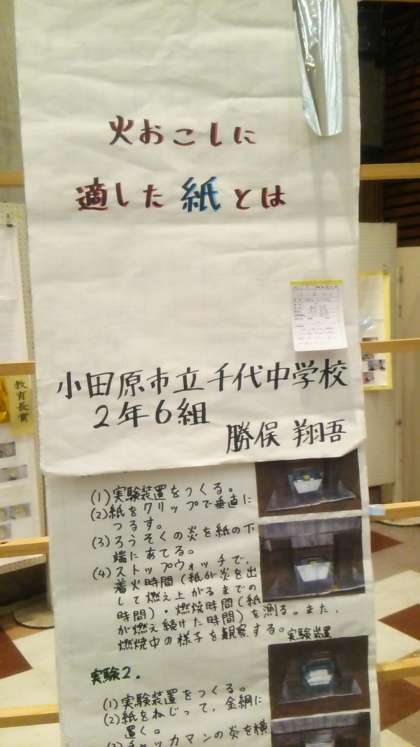 火おこしに
適した紙とは
小田原市立千代中学校
2年6組
勝俣 翔吾
教育長賞
(1)実験装置をつくる。
(2)紙をクリップで垂直に
つるす。
(3)ろうそくの炎を紙の下
端にあてる。
(4)ストップウォッチで、
着火時間(紙が炎を出
して燃え上がるまでの
時間)・燃焼時間(紙
が燃え続けた時間)を測る。また、
燃焼中の様子を観察する。
実験装置
実験2.
(1)実験装置をつくる。
(2)紙をねじって、金網に
置く。
(3)チャッカマンの炎を横